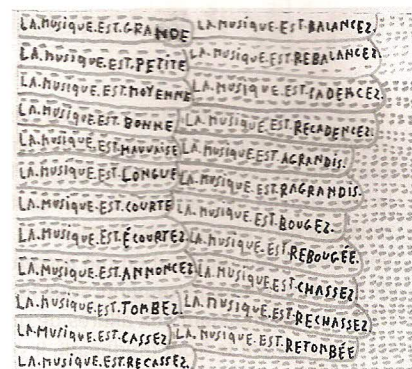 LA.MUSIQUE.EST.GRANDE
LA.MUSIQUE.EST.PETITE
LA.MUSIQUE.EST.MOYENNE
LA.MUSIQUE.EST.BONNE
LA.MUSIQUE.EST.MAUVAISE
LA.MUSIQUE.EST.LONGUE
LA.MUSIQUE.EST.COURTE
LA.MUSIQUE.EST.ÉCOURTEZ
LA.MUSIQUE.EST.ANNONCEZ
LA.MUSIQUE.EST.TOMBEZ.
LA.MUSIQUE.EST.CASSEZ
LA.MUSIQUE.EST.RECASSEZ.
LA.MUSIQUE.EST.BALANCEZ.
LA.MUSIQUE.EST.REBALANCEZ.
LA.MUSIQUE.EST.CADENCEZ.
LA.MUSIQUE.EST.RECADENCEZ.
LA.MUSIQUE.EST.AGRANDIS.
LA.MUSIQUE.EST.RAGRANDIS.
LA.MUSIQUE.EST.BOUGEZ.
LA.MUSIQUE.EST.REBOUGÉE.
LA.MUSIQUE.EST.CHASSEZ
LA.MUSIQUE.EST.RECHASSEZ
LA.MUSIQUE.EST.RETOMBÉE